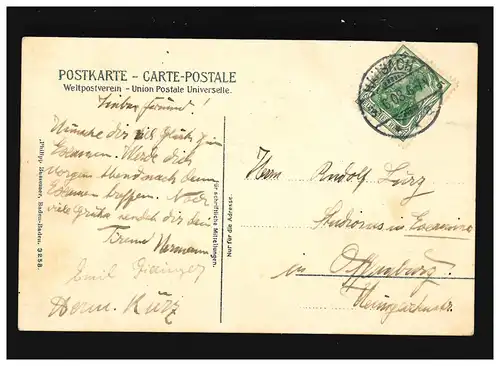 POSTKARTE – CARTE-POSTALE
Weltpostverein – Union Postale Universelle.
Lieber Freund!
Wünsche dir viel Glück zum
Examen. Werde dich
morgen abend nach dem
Examen treffen. Noch
viele Grüße sendet dir dein
Freund Hermann
Emil
Herm. Kurz
Philipp Baden-Baden. 3258.
Für schriftliche Mitteilungen.
Nur für die Adresse.
HAUSACH
Herrn Rudolf Lurz
Studiosus in
in Offenburg
Weingartenstr.